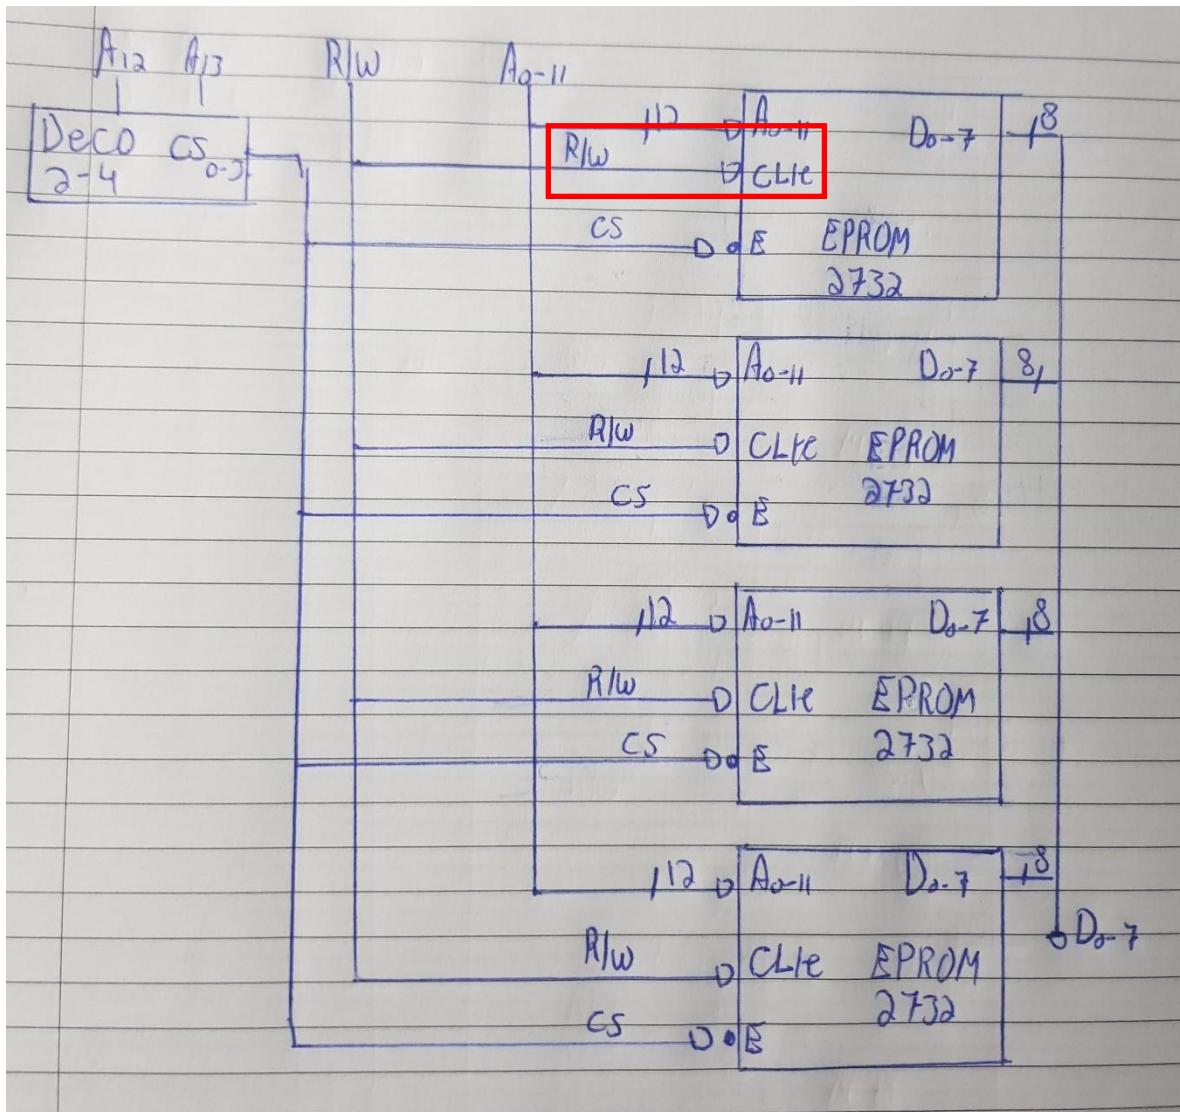 A12 A13 R/W A0-11
Deco CS0-3
2-4
12 A0-11 D0-7 8
R/W CLK
CS E EPROM
2732
12 A0-11 D0-7 8
R/W CLK EPROM
2732
CS E
12 A0-11 D0-7 8
R/W CLK EPROM
2732
CS E
12 A0-11 D0-7 8
D0-7
R/W CLK EPROM
2732
CS E